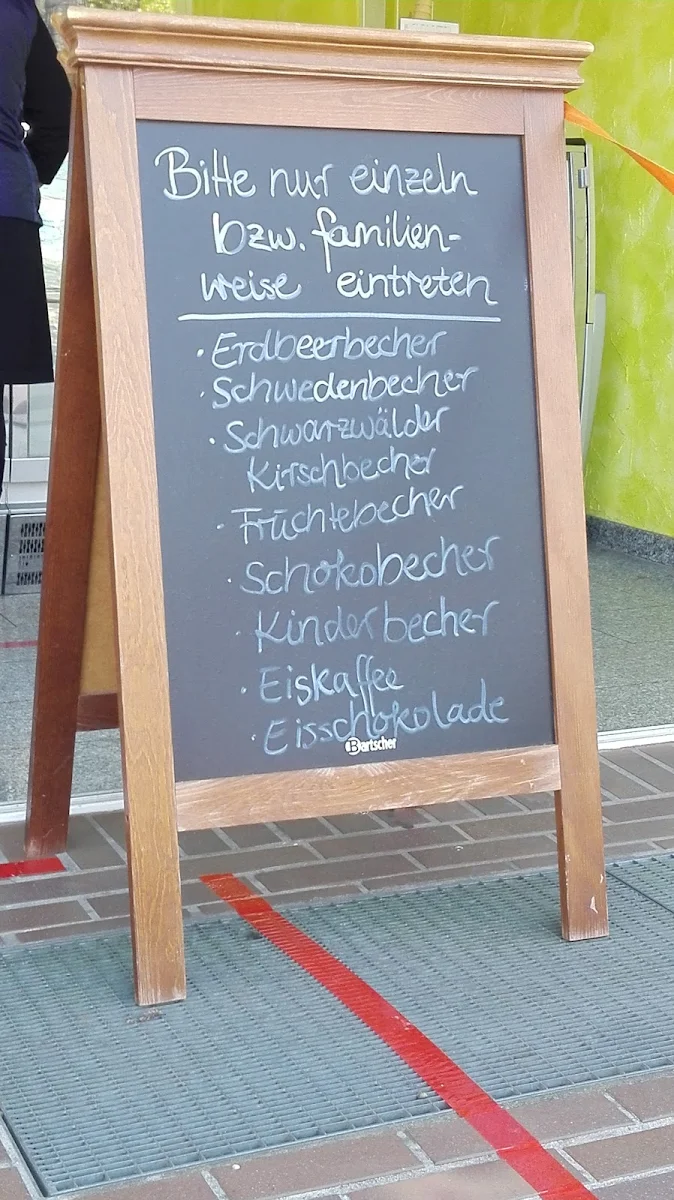 Bitte nur einzeln
bzw. familien-
weise eintreten
· Erdbeerbecher
· Schwedenbecher
· Schwarzwälder
Kirschbecher
· Früchtebecher
· Schokobecher
· Kinderbecher
· Eiskaffee
· Eisschokolade
Bartscher